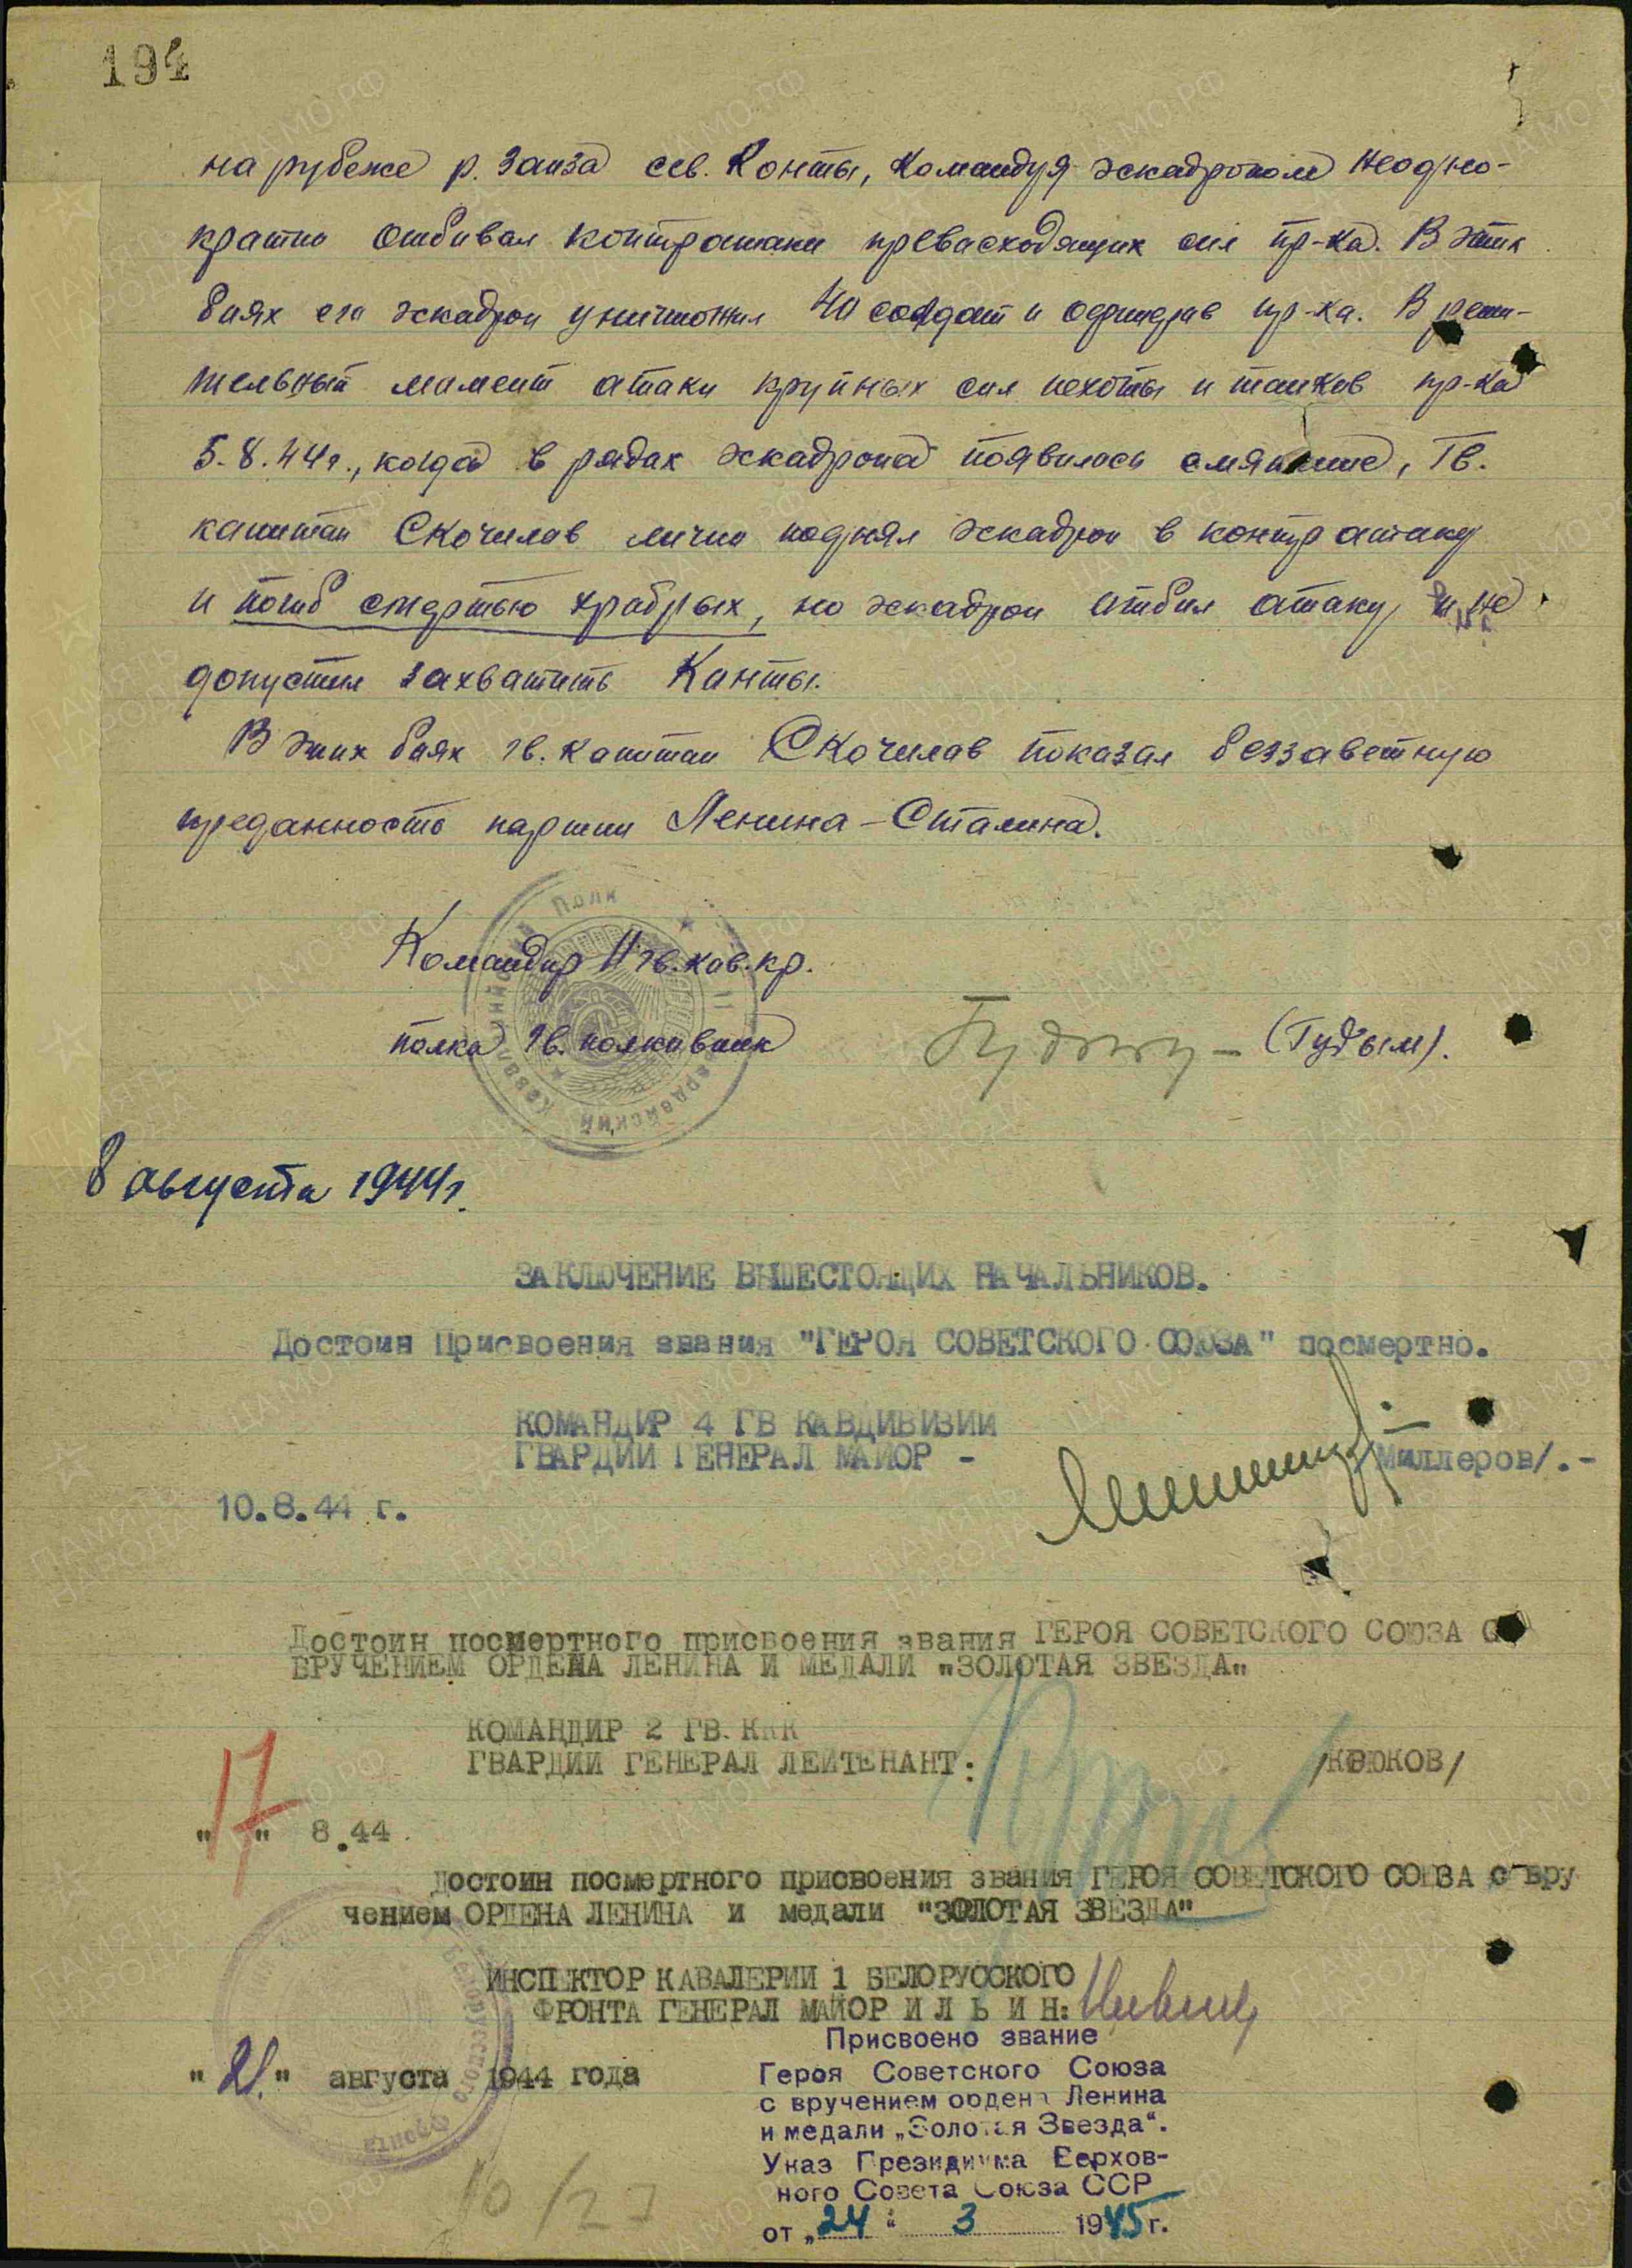 194
на рубеже р. Занза сев. Конты, Командуя эскадроном неодно-
кратно отбивал контратаки превасходящих сил пр-ка. В этих
боях его эскадрон уничтожил 40 солдат и офицеров пр-ка. В реши-
тельный момент атаки крупных сил пехоты и танков пр-ка
5.8.44г., когда в рядах эскадрона появилось смятение, Гв.
капитан Скочилов лично поднял эскадрон в контратаку
и погиб смертью храбрых, но эскадрон отбил атаку и не
допустил захватить Канты.
В этих боях гв. капитан Скочилов показал беззаветную
преданность партии Ленина-Сталина.
Командир 11 гв. кав. кр.
полка Гв. полковник (Гудым).
8 августа 1944г.
ЗАКЛЮЧЕНИЕ ВЫШЕСТОЯЩИХ НАЧАЛЬНИКОВ.
Достоин Присвоения звания "ГЕРОЯ СОВЕТСКОГО СОЮЗА" посмертно.
КОМАНДИР 4 ГВ КАВДИВИЗИИ
ГВАРДИИ ГЕНЕРАЛ МАЙОР - /Миллеров/.-
10.8.44 г.
Достоин посмертного присвоения звания ГЕРОЯ СОВЕТСКОГО СОЮЗА С
ВРУЧЕНИЕМ ОРДЕНА ЛЕНИНА И МЕДАЛИ "ЗОЛОТАЯ ЗВЕЗДА"
КОМАНДИР 2 ГВ. ККК
ГВАРДИИ ГЕНЕРАЛ ЛЕЙТЕНАНТ: /КРЮКОВ/
"17" 8.44.
Достоин посмертного присвоения звания ГЕРОЯ СОВЕТСКОГО СОЮЗА с вру
чением ОРДЕНА ЛЕНИНА и медали "ЗОЛОТАЯ ЗВЕЗДА"
ИНСПЕКТОР КАВАЛЕРИИ 1 БЕЛОРУССКОГО
ФРОНТА ГЕНЕРАЛ МАЙОР И Л Ь И Н:
"21." августа 1944 года
Присвоено звание
Героя Советского Союза
с вручением ордена Ленина
и медали „Золотая Звезда“.
Указ Президиума Верхов-
ного Совета Союза ССР
от „24“ 3 1945г.